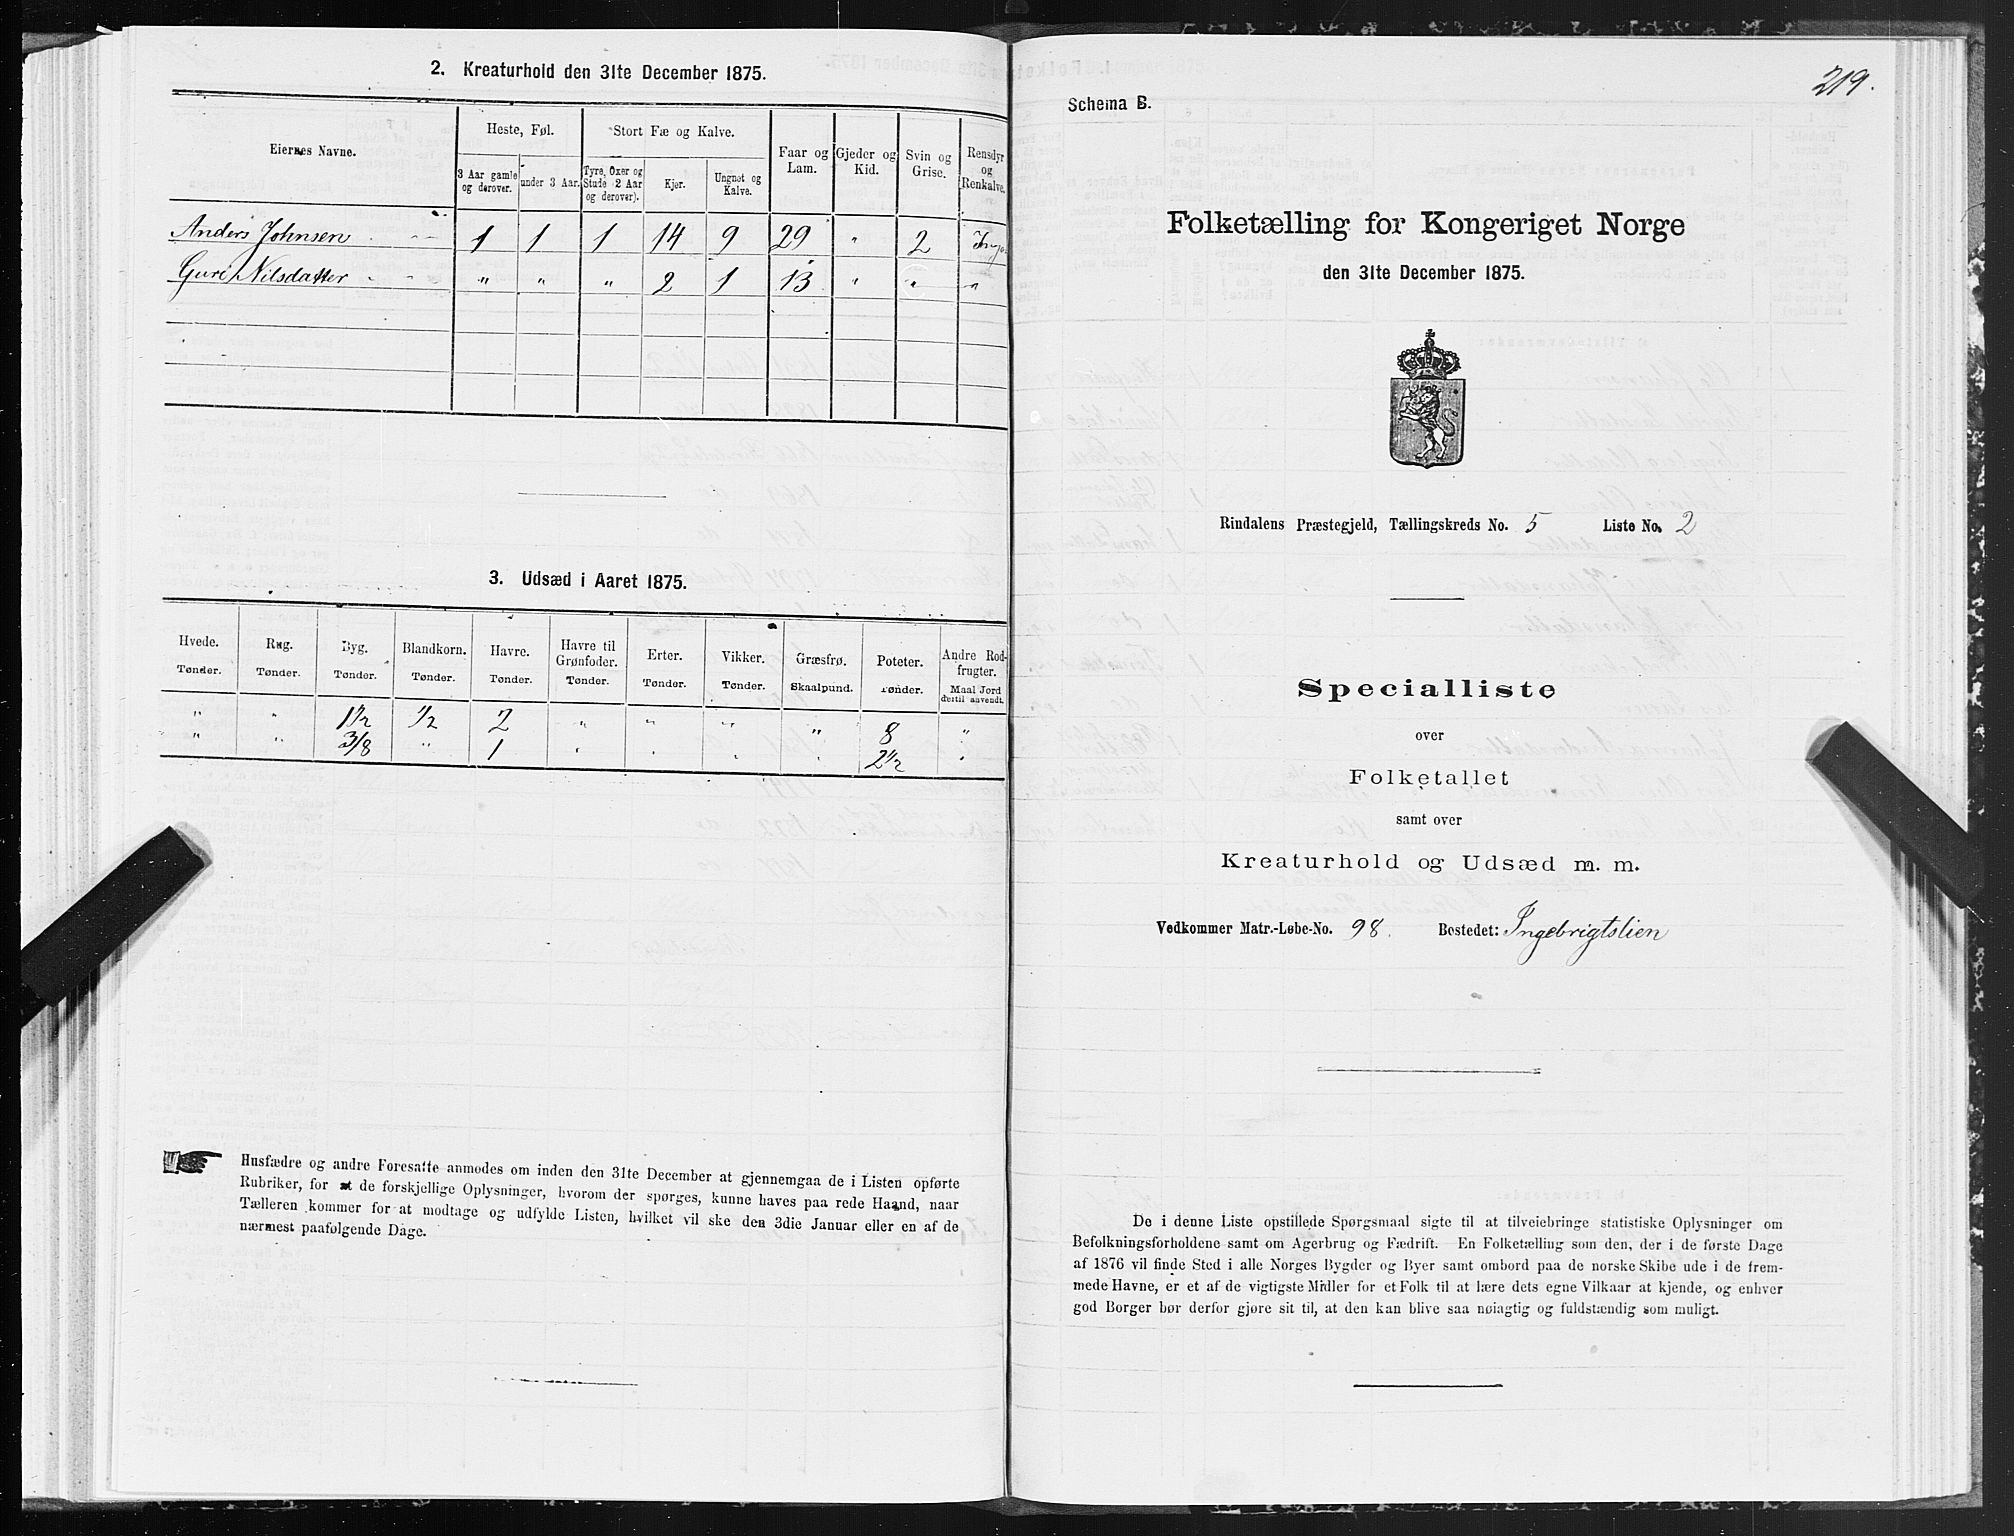 2. Kreaturhold den 31te December 1875.
Eiernes Navne.
Heste, Føl.
Stort Fæ og Kalve.
Faar og Lam.
Gjeder og Kid.
Svin og Grise.
Rensdyr og Renkalve.
3 Aar gamle og derover.
under 3 Aar.
Tyre, Oxer og Stude (2 Aar og derover).
Kjør.
Ungnøt og Kalve.
Anders Johnsen 1 1 1 14 9 29 " 2
Guri Nilsdatter " " " 2 1 13 " " "
3. Udsæd i Aaret 1875.
Hvede. Rug. Byg. Blandkorn. Havre. Havre til Grønfoder. Erter. Vikker. Græsfrø. Poteter. Andre Rodfrugter.
Tønder. Tønder. Tønder. Tønder. Tønder. Tønder. Tønder. Tønder. Skaalpund. Tønder. Maal Jord dertil anvendt.
" " 1 1/2 1/2 2 " " " " 8 "
" " 3/8 " 1 " " " " 2 1/2 "
Husfædre og andre Foresatte anmodes om inden den 31te December at gjennemgaa de i Listen opførte
Rubriker, for at de forskjellige Oplysninger, hvorom der spørges, kunne haves paa rede Haand, naar
Tælleren kommer for at modtage og udfylde Listen, hvilket vil ske den 3die Januar eller en af de
nærmest paafølgende Dage.
219.
Schema B.
Folketælling for Kongeriget Norge
den 31te December 1875.
Rindalens Præstegjeld, Tællingskreds No. 5 Liste No. 2
Specialliste
over
Folketallet
samt over
Kreaturhold og Udsæd m. m.
Vedkommer Matr.-Løbe-No. 98. Bostedet: Ingebrigtslien
De i denne Liste opstillede Spørgsmaal sigte til at tilveiebringe statistiske Oplysninger om
Befolkningsforholdene samt om Agerbrug og Fædrift. En Folketælling som den, der i de første Dage
af 1876 vil finde Sted i alle Norges Bygder og Byer samt ombord paa de norske Skibe ude i de frem-
mede Havne, er et af de vigtigste Midler for et Folk til at lære dets egne Vilkaar at kjende, og enhver
god Borger bør derfor gjøre sit til, at den kan blive saa nøiagtig og fuldstændig som muligt.